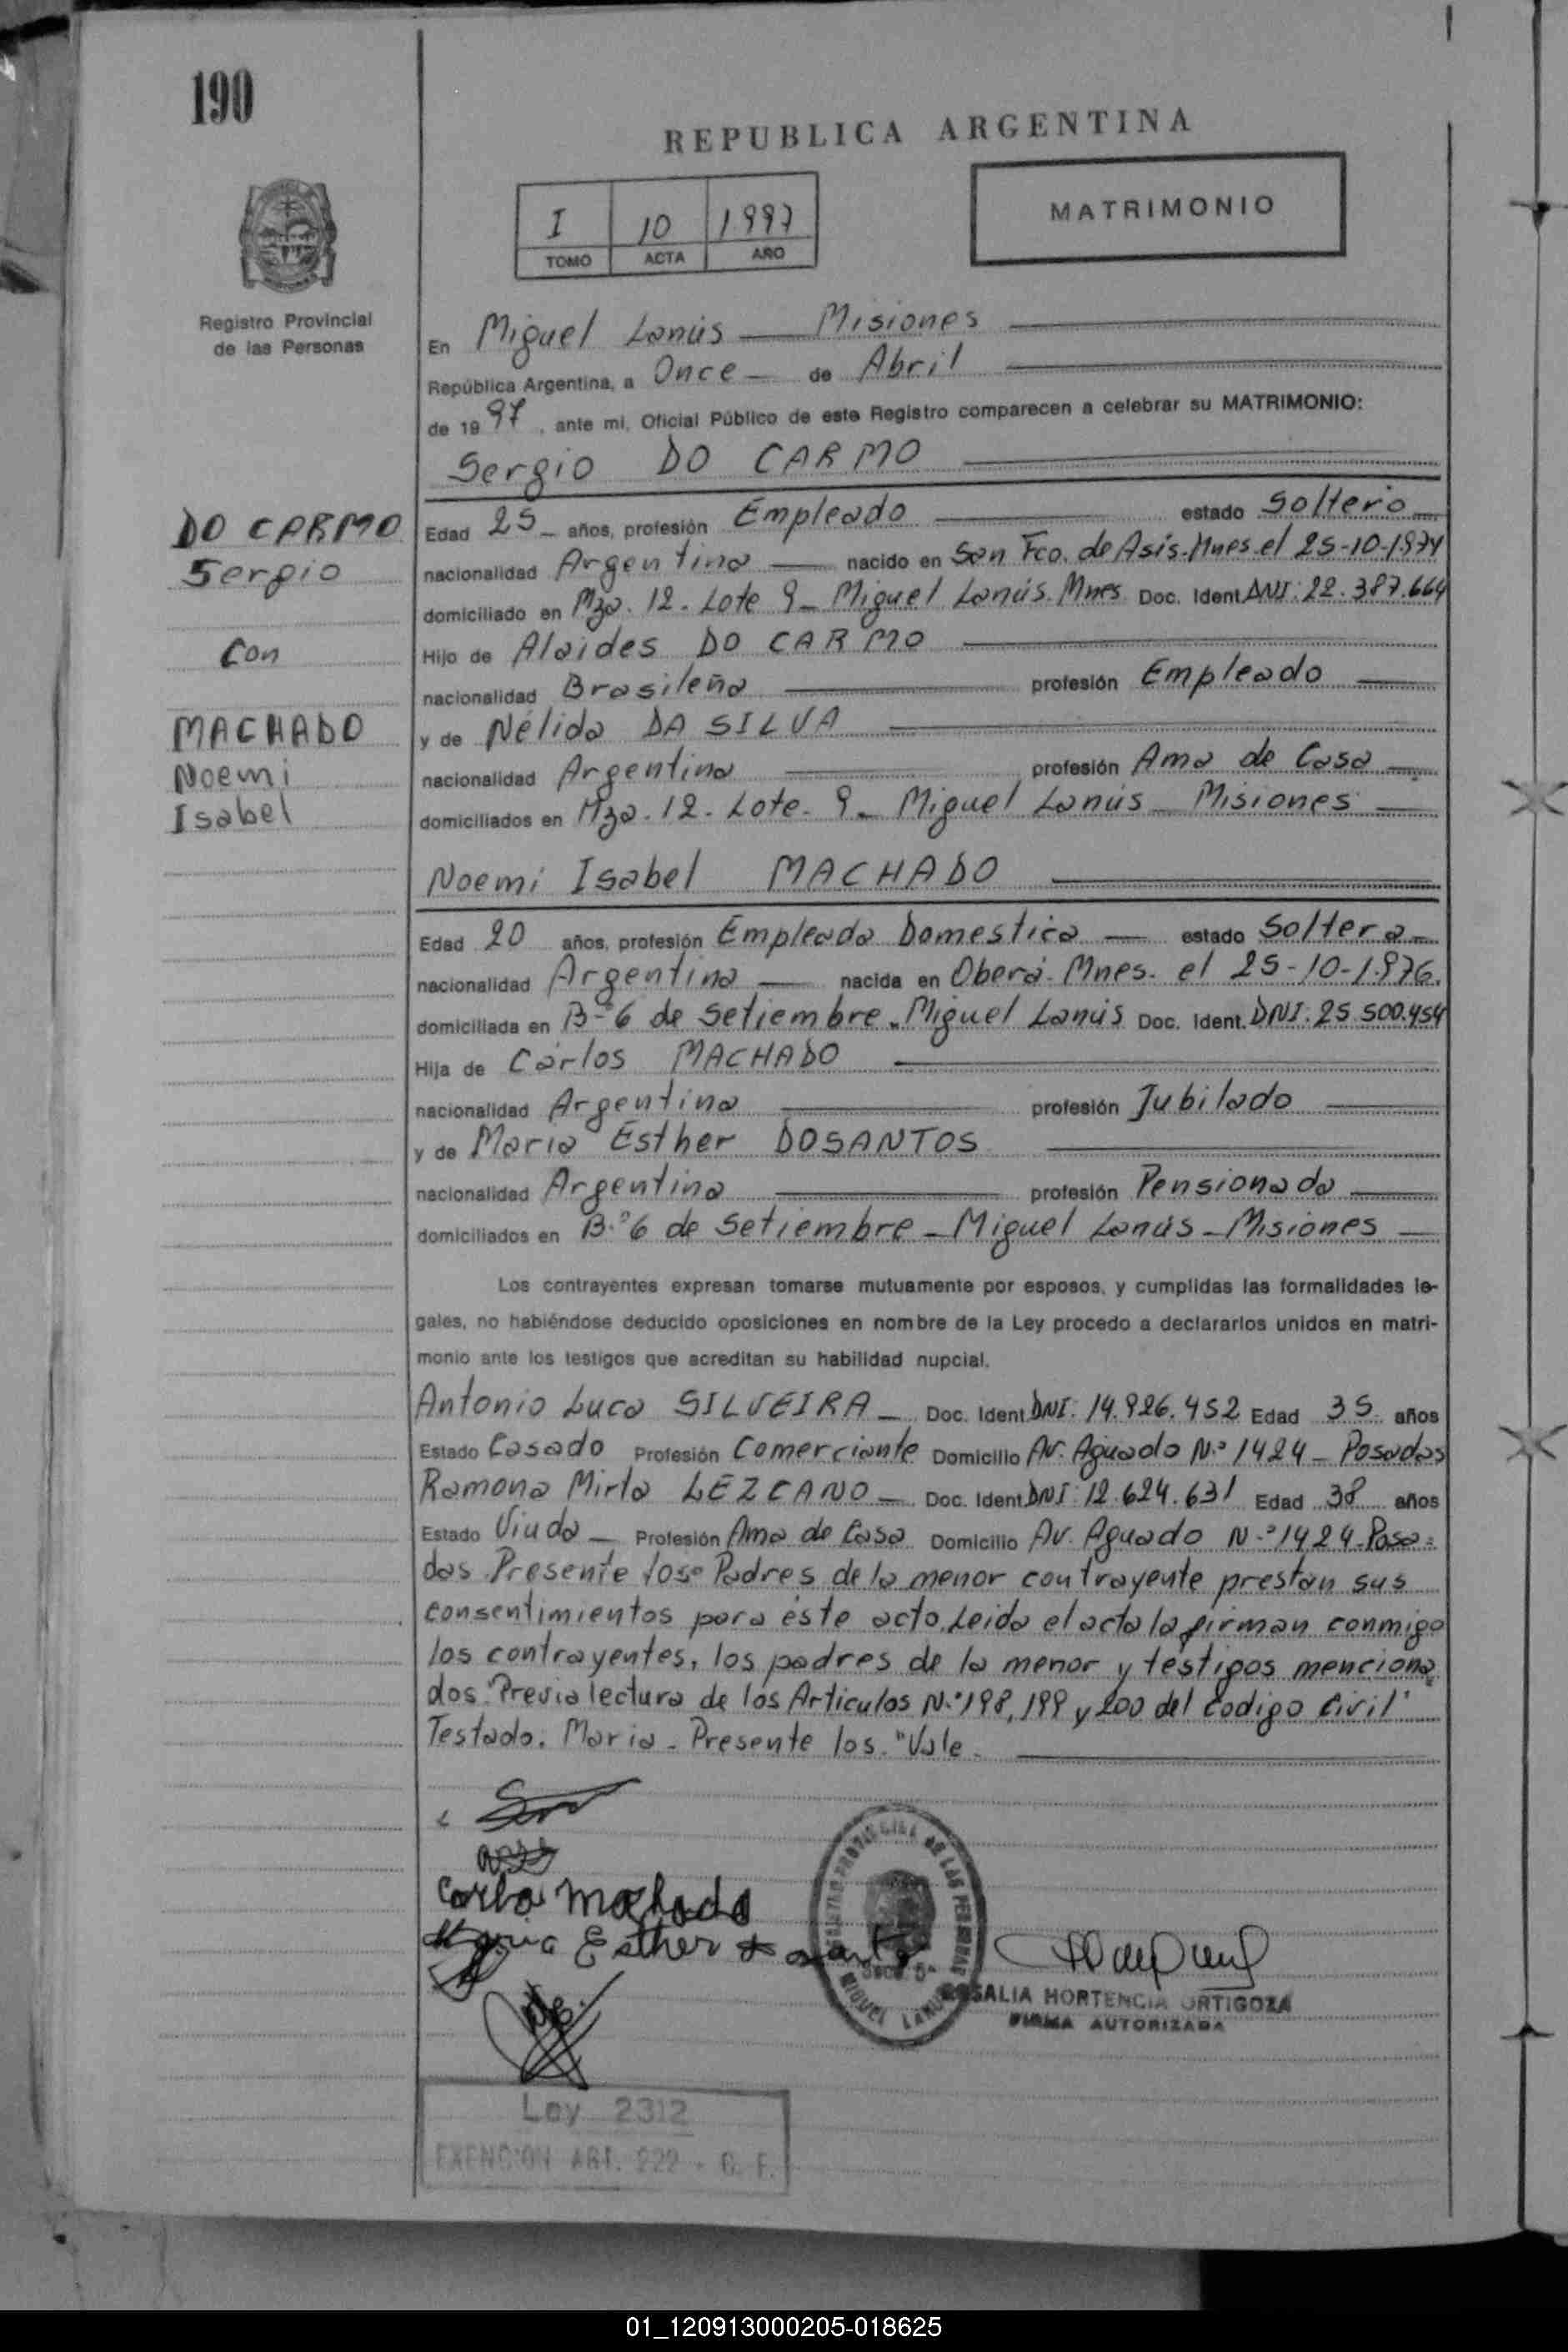 190
REPUBLICA ARGENTINA
I 10 1997
TOMO ACTA AÑO
MATRIMONIO
Registro Provincial
de las Personas
En Miguel Lanús — Misiones
República Argentina, a Once — de Abril
de 19 97, ante mi, Oficial Público de este Registro comparecen a celebrar su MATRIMONIO:
Sergio DO CARMO
DO CARMO
Sergio
Con
MACHADO
Noemi
Isabel
Edad 25 — años, profesión Empleado — estado Soltero —
nacionalidad Argentina — nacido en San Fco. de Asís-Mnes. el 25-10-1971
domiciliado en Mza. 12. Lote 9 — Miguel Lanús. Mnes. Doc. Ident. DNI: 22.387.664
Hijo de Alaides DO CARMO
nacionalidad Brasileña — profesión Empleado —
y de Nélida DA SILVA
nacionalidad Argentina — profesión Ama de Casa —
domiciliados en Mza. 12. Lote. 9 — Miguel Lanús — Misiones —
Noemi Isabel MACHADO
Edad 20 años, profesión Empleada Domestica — estado Soltera —
nacionalidad Argentina — nacida en Oberá. Mnes. el 25-10-1.976.
domiciliada en B-° 6 de Setiembre. Miguel Lanús Doc. Ident. DNI: 25.500.454
Hija de Carlos MACHADO
nacionalidad Argentina — profesión Jubilado —
y de Maria Esther DOSANTOS
nacionalidad Argentina — profesión Pensionada —
domiciliados en B.° 6 de Setiembre — Miguel Lanús — Misiones —
Los contrayentes expresan tomarse mutuamente por esposos, y cumplidas las formalidades le-
gales, no habiéndose deducido oposiciones en nombre de la Ley procedo a declararlos unidos en matri-
monio ante los testigos que acreditan su habilidad nupcial.
Antonio Luca SILVEIRA — Doc. Ident. DNI: 14.926.452 Edad 35 años
Estado Casado Profesión Comerciante Domicilio Av. Aguado N.° 1424 — Posadas
Ramona Mirta LEZCANO — Doc. Ident. DNI: 12.624.631 Edad 38 años
Estado Viuda — Profesión Ama de Casa Domicilio Av. Aguado N.° 1424 — Posa=
das. Presente los Padres de la menor contrayente prestan sus
consentimientos para éste acto. Leida el acta la firman conmigo
los contrayentes, los padres de la menor y testigos menciona
dos. "Previa lectura de los Articulos N.° 198, 199 y 200 del Codigo Civil".
Testado. Maria — Presente los. "Vale.
Carlos Machado
Maria Esther
REGISTRO PROVINCIAL DE LAS PERSONAS
MIGUEL LANUS
ROSALIA HORTENCIA ORTIGOZA
FIRMA AUTORIZADA
Ley 2312
EXENCION ART. 222 - C. F.
01_120913000205-018625